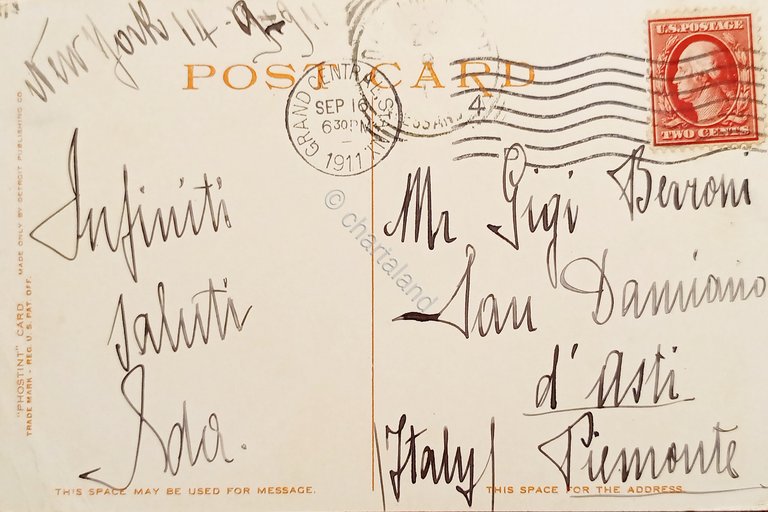 New York 14-9-911
POST CARD
GRAND CENTRAL STA. N.Y.
SEP 16
6 30 PM
1911
4
U.S. POSTAGE
TWO CENTS
Infiniti
saluti
Ida.
Mr Gigi Berroni
San Damiano
d'Asti
Piemonte
(Italy)
"PHOSTINT" CARD
TRADE MARK - REG. U.S. PAT. OFF.
MADE ONLY BY DETROIT PUBLISHING CO.
THIS SPACE MAY BE USED FOR MESSAGE.
THIS SPACE FOR THE ADDRESS.
© chartaland